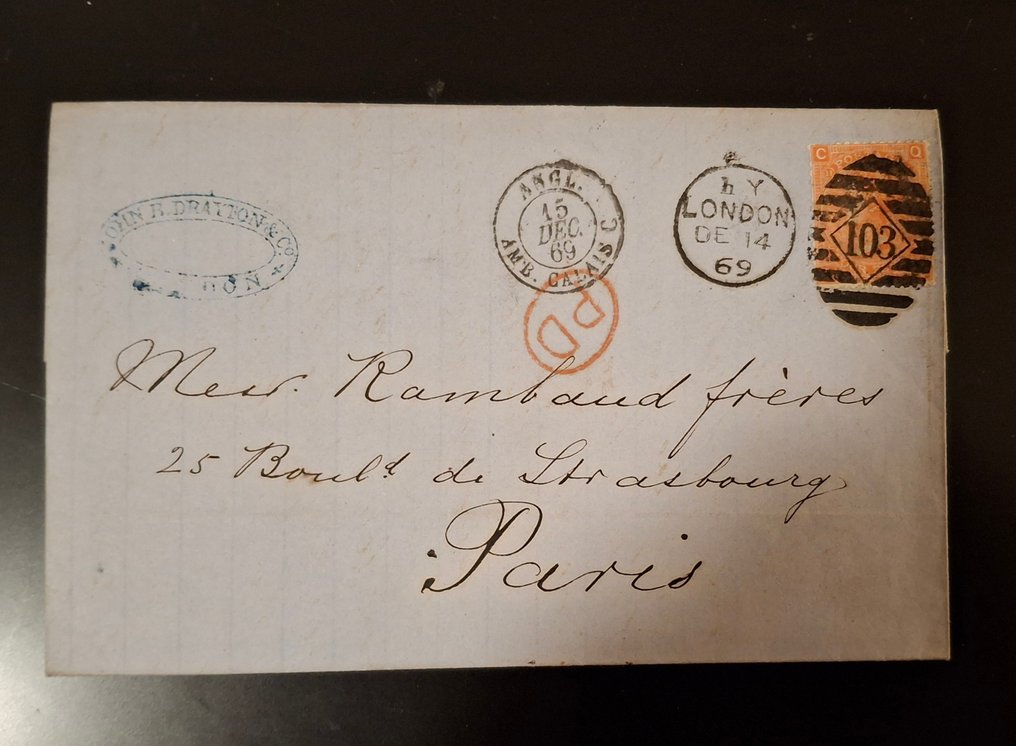 JOHN H. DRAYTON & Co
ANGL.
15
DEC.
69
AMB. CALAIS C
hY
LONDON
DE 14
69
C Q
103
PD
Mess. Rambaud frères
25 Boul.d de Strasbourg
Paris